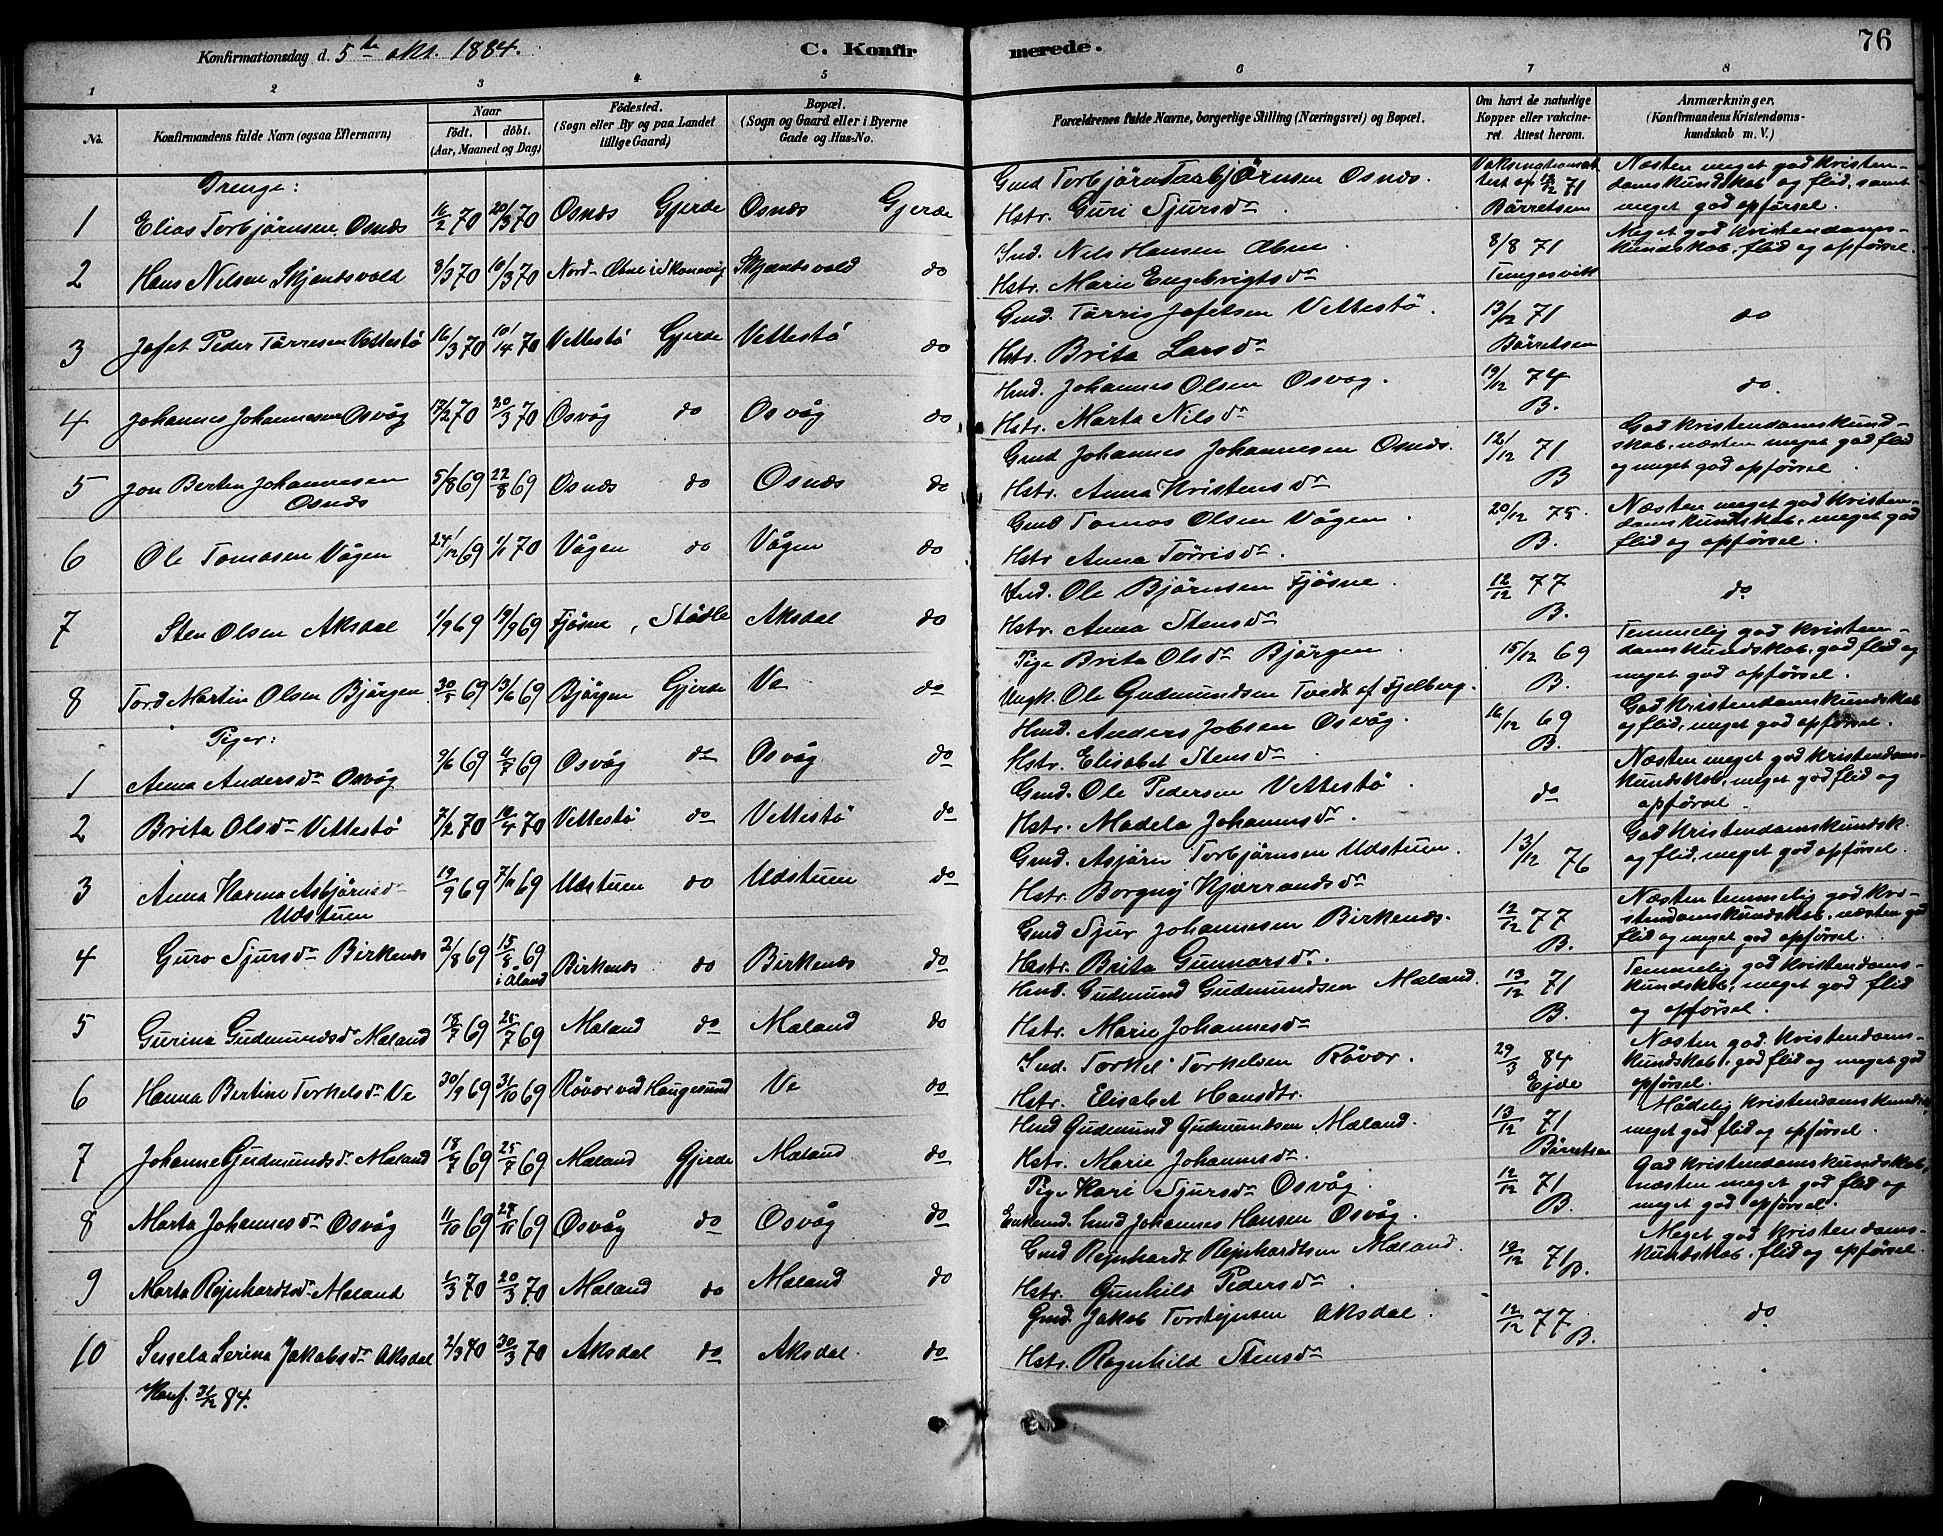 Konfirmationsdag d. 5te okt. 1884.
C. Konfirmerede.
76
1 2 3 4 5 6 7 8
No.
Konfirmandens fulde Navn (ogsaa Efternavn)
Naar
födt. döbt.
(Aar, Maaned og Dag)
Födested.
(Sogn eller By og paa Landet
tillige Gaard)
Bopæl.
(Sogn og Gaard eller i Byerne
Gade og Hus-No.
Forældrenes fulde Navne, borgerlige Stilling (Næringsvei) og Bopæl.
Om havt de naturlige
Kopper eller vakcine-
ret. Attest herom.
Anmærkninger.
(Konfirmandens Kristendoms-
kundskab m. V.)
Drenge:
1 Elias Torbjörnsen Osnäs 16/2 70 20/3 70 Osnäs Gjerde Osnäs Gjerde
Gmd Torbjörn Torbjörnsen Osnäs.
Hstr. Guri Sjursdr
Vaksinationsat
test af 12/12 71
Börretsen
Næsten meget god kristen-
domskundskab og flid, samt
meget god opförsel.
2 Hans Nilsen Skjendsvold 8/3 70 10/3 70 Nord-Øbne i Skonevig Skjendsvold do
Ind. Nils Hansen Øbne.
Hstr. Marie Engebrigtsdr
8/8 71
Tungesvik
Meget god kristendoms-
kundskab, flid og opförsel.
3 Jofet Peder Törresen Vettestö 16/3 70 10/4 70 Vettestö Gjerde Vettestö do
Gmd. Törris Jofetsen Vettestö.
Hstr. Brita Larsdr
13/12 71
Börretsen
do
4 Johannes Johannesen Osvåg 17/2 70 20/3 70 Osvåg do Osvåg do
Hmd. Johannes Olsen Osvåg.
Hstr. Marta Nilsdr
19/12 74
B.
do.
5 Jon Berten Johannesen
Osnäs 5/8 69 22/8 69 Osnäs do Osnäs do
Gmd Johannes Johannesen Osnäs.
Hstr. Anna Kristensdr
12/12 71
B
God kristendomskund-
skab, næsten meget god flid
og meget god opförsel.
6 Ole Tomasen Vågen 24/12 69 1/1 70 Vågen do Vågen do
Gmd Tomas Olsen Vågen.
Hstr. Anna Törrisdr.
20/12 75.
B.
Næsten meget god kristen-
domskundskab, meget god
flid og opförsel.
7 Sten Olsen Aksdal 1/9 69 19/9 69 Fjösne, Stödle Aksdal do
Ind. Ole Björnsen Fjösne.
Hstr. Anna Stensdr
12/12 77
B.
do
8 Tord Martin Olsen Björgen 30/5 69 13/6 69 Björgen Gjerde Ve do
Pige Brita Olsdr Björgen.
Ungk. Ole Gudmundsen Tvedt af Fjelberg.
15/12 69
B.
Temmelig god kristen-
domskundskab, god flid og
meget god opförsel.
Piger:
1 Anna Andersdr Osvåg 9/6 69 11/7 69 Osvåg do Osvåg do
Hmd. Anders Jobsen Osvåg.
Hstr. Elisabet Stensdr
16/12 69
B.
God kristendomskundskab
og flid, meget god opförsel.
2 Brita Olsdr Vettestö 7/2 70 10/4 70 Vettestö do Vettestö do
Gmd. Ole Pedersen Vettestö.
Hstr. Madela Johannesdr.
do
Næsten meget god kristendoms-
kundskab, meget god flid og
opförsel.
3 Anna Karina Asbjörnsdr
Udstuen 19/9 69 7/11 69 Udstuen do Udstuen do
Gmd. Asjörn Torbjörnsen Udstuen.
Hstr. Borgny Kjærrandsdr
13/12 76
God kristendomskundsk.
og flid, meget god opförsel.
4 Guro Sjursdr Birkenäs 2/8 69 15/8 69
i Åland Birkenäs do Birkenäs do
Gmd Sjur Johannesen Birkenäs.
Hstr. Brita Gunnarsdr.
12/12 77
B.
Næsten temmelig god kri-
stendomskundskab, næsten god
flid og meget god opförsel.
5 Gurina Gudmundsdr Mæland 18/7 69 25/7 69 Mæland do Mæland do
Hmd. Gudmund Gudmundsen Mæland.
Hstr. Marie Johannesdr
13/12 71
B.
Temmelig god kristendoms-
kundskab, meget god flid
og opförsel.
6 Hanna Bertine Torkelsdr Ve 30/9 69 31/10 69 Rövær ved Haugesund Ve do
Ind. Torkel Torkelsen Rövær.
Hstr. Elisabet Hansdtr.
29/3 84
Ejde
Næsten god kristendoms-
kundskab, god flid og meget god
opförsel.
7 Johanne Gudmundsdr Mæland 18/7 69 25/7 69 Mæland Gjerde Mæland do
Hmd Gudmund Gudmundsen Mæland.
Hstr. Marie Johannesdr.
13/12 71
Börretsen
Mådelig kristendomskundsk.
meget god flid og opförsel.
8 Marta Johannesdr Osvåg 11/10 69 28/11 69 Osvåg do Osvåg do
Pige Kari Sjursdr Osvåg.
Enkemd. hmd Johannes Hansen Osvåg.
12/12 71
B.
God kristendomskundskab,
næsten meget god flid og
meget god opförsel.
9 Marta Rejnhardtsdr Mæland 1/3 70 20/3 70 Mæland do Mæland do
Gmd Rejnhardt Rejnhardtsen Mæland.
Hstr. Gunhild Pedersdr.
12/12 71
B.
Meget god kristendoms-
kundskab, flid og opförsel.
10 Sessela Serina Jakobsdr Aksdal 2/3 70 30/3 70 Aksdal do Aksdal. do
Gmd. Jakob Torstejnsen Aksdal.
Hstr. Ragnhild Stensdr
12/12 77
B.
do
Konf. 31/12 84.